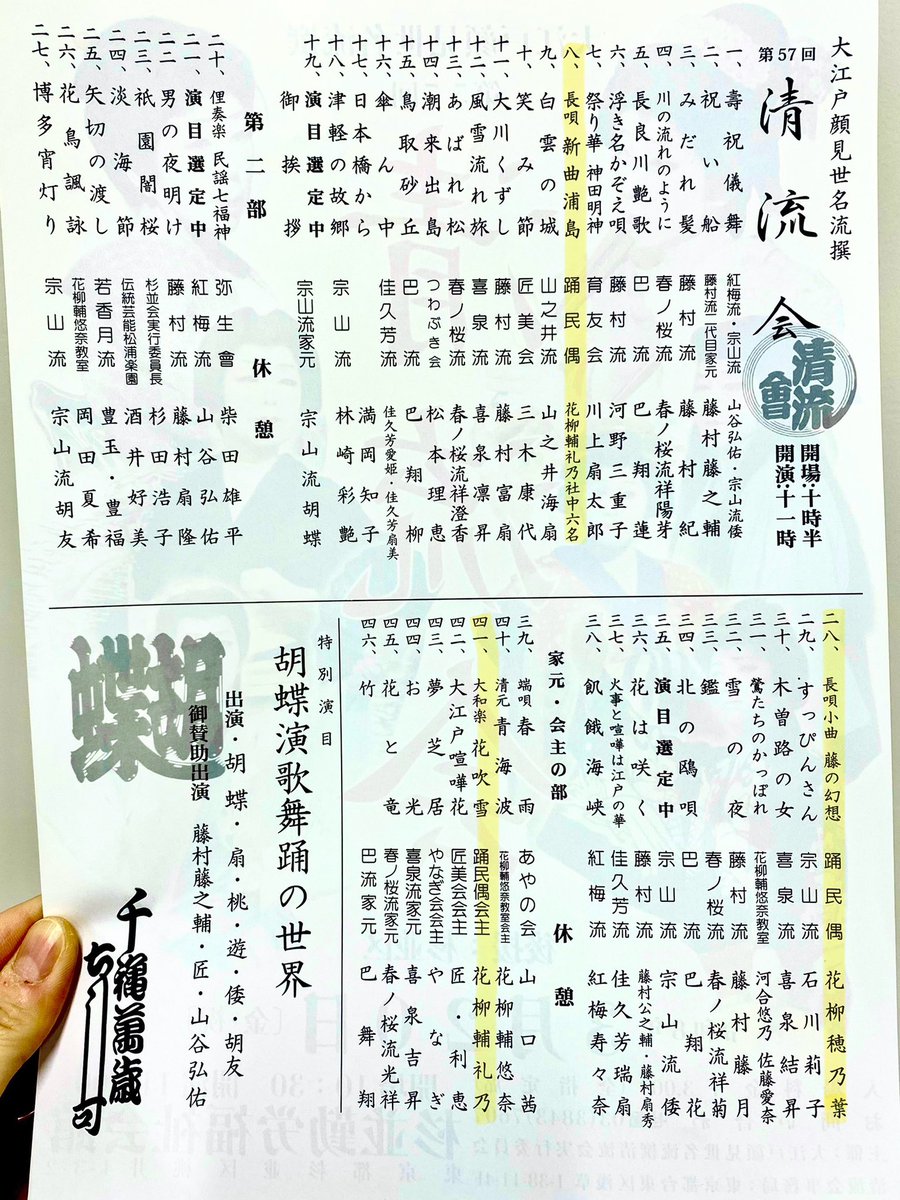 大江戸顔見世名流撰
第57回 清流会
清流會
開場：十時半
開演：十一時
一、壽祝儀舞 紅梅流・宗山流 山谷弘佑・宗山流倭
二、祝い船 藤村流二代目家元 藤村藤之輔
三、みだれ髪 藤村流 藤村紀
四、川の流れのように 春ノ桜流 春ノ桜流祥陽芽
五、長良川艶歌 巴流 巴翔蓮
六、浮き名かぞえ唄 藤村流 河野三重子
七、祭り華神田明神 育友会 川上扇太郎
八、長唄 新曲浦島 踊民偶 花柳輔礼乃社中六名
九、白雲の城 山之井流 山之井海扇
十、笑みの節 匠美会 三木康代
十一、大川くずし 藤村流 藤村富扇
十二、風雪流れ旅 喜泉流 喜泉凛昇
十三、あばれ松 春ノ桜流 春ノ桜流祥澄香
十四、潮来出島 つわぶき会 松本理恵
十五、鳥取砂丘 巴流 巴翔柳
十六、傘ん中 佳久芳流 佳久芳愛姫・佳久芳扇美
十七、日本橋から 満岡知子
十八、津軽の故郷 宗山流 林崎彩艶
演目選定中
十九、御挨拶 宗山流家元 宗山流胡蝶
休憩
第二部
二十、俚奏楽 民謡七福神 弥生會 柴田雄平
二一、演目選定中 紅梅流 山谷弘佑
二二、男の夜明け 藤村流 藤村扇隆
二三、祇園闇桜 杉並会実行委員長 杉田浩子
二四、淡海節 伝統芸能松浦楽園 酒井好美
二五、矢切の渡し 若香月流 豊玉・豊福
二六、花鳥諷詠 花柳輔悠奈教室 岡田夏希
二七、博多宵灯り 宗山流 宗山流胡友
二八、長唄小曲 藤の幻想 踊民偶 花柳穂乃葉
二九、すっぴんさん 宗山流 石川莉子
三十、木曽路の女 喜泉流 喜泉結昇
三一、鶯たちのかっぽれ 花柳輔悠奈教室 河合悠乃 佐藤愛奈
三二、雪の夜 藤村流 藤村藤月
三三、鑑の夜 春ノ桜流 春ノ桜流祥菊
三四、北の鴎唄 巴流 巴翔花
三五、演目選定中 宗山流 宗山流倭
三六、花は咲く 藤村流 藤村公之輔・藤村扇秀
三七、火事と喧嘩は江戸の華 佳久芳流 佳久芳瑞扇
三八、飢餓海峡 紅梅流 紅梅寿々奈
休憩
家元・会主の部
三九、端唄 春雨 あやの会 山口茜
四十、清元 青海波 花柳輔悠奈教室会主 花柳輔悠奈
四一、大和楽 花吹雪 踊民偶会主 花柳輔礼乃
四二、大江戸喧嘩花 匠美会会主 匠・利恵
四三、夢芝居 やなぎ会会主 やなぎ
四四、お光 喜泉流家元 喜泉吉昇
四五、花と竜 春ノ桜流家元 春ノ桜流光祥
四六、竹 巴流家元 巴舞翔
特別演目
胡蝶演歌舞踊の世界
出演・胡蝶・扇・桃・遊・倭・胡友
御賛助出演 藤村藤之輔・匠・山谷弘佑
胡蝶
千穐萬歳